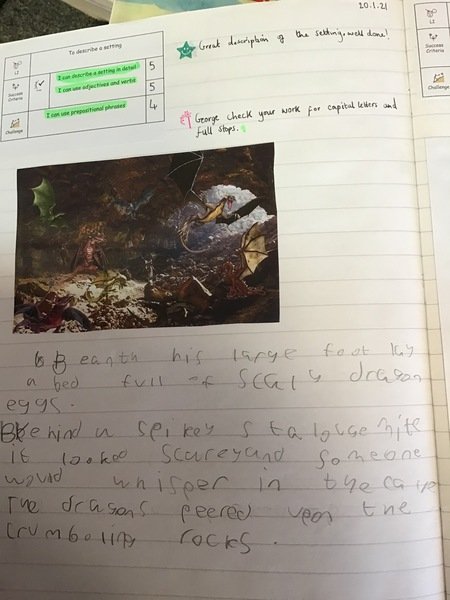 20.1.21
To describe a setting
LI
Success
Criteria
Challenge
I can describe a setting in detail
I can use adjectives and verbs
I can use prepositional phrases
5
5
4
Great description of the setting, well done!
George check your work for capital letters and
full stops.
LI
Success
Criteria
Challenge
B eanth his large foot lay
a bed full of scaly dragon
eggs.
Behind a spikey stalougemite
it looked scarey and someone
would whisper in the cave
The dragons peered upon the
crumbolling rocks.